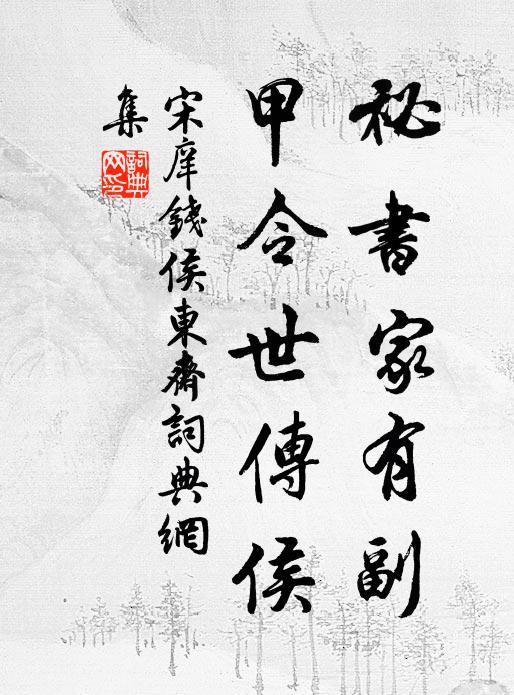 秘書家有副
甲令世傳侯
宋庠錢侯東齋詞典網
集
詞典
网